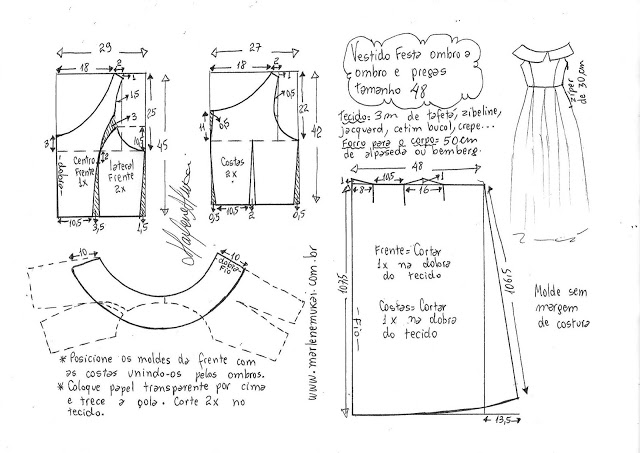 29
18
2
1
1,5
3
25
45
10,5
3
2
-dobra-
Centro
Frente
1x
lateral
Frente
2x
10,5
3,5
1,5
27
18
2
1
0,5
22
42
11
0,5
Costas
2x
0,5
10,5
2
0,5
Vestido Festa ombro a
ombro e pregas
tamanho 48
Tecido= 3m de tafetá, zibeline,
jacquard, cetim bucol, crepe...
Forro para o corpo= 50cm
de alpaseda ou bemberg.
zíper
de 30cm
48
1
8
10,5
16
1
107,5
106,5
Frente= Cortar
1x na dobra
do tecido
Costas= Cortar
1x na dobra
do tecido
-Fio-
13,5
Molde sem
margem
de costura
10
10
dobra
Fio
* Posicione os moldes da frente com
as costas unindo-os pelos ombros.
* Coloque papel transparente por cima
e trece a gola. Corte 2x no
tecido.
www.marlenemukai.com.br